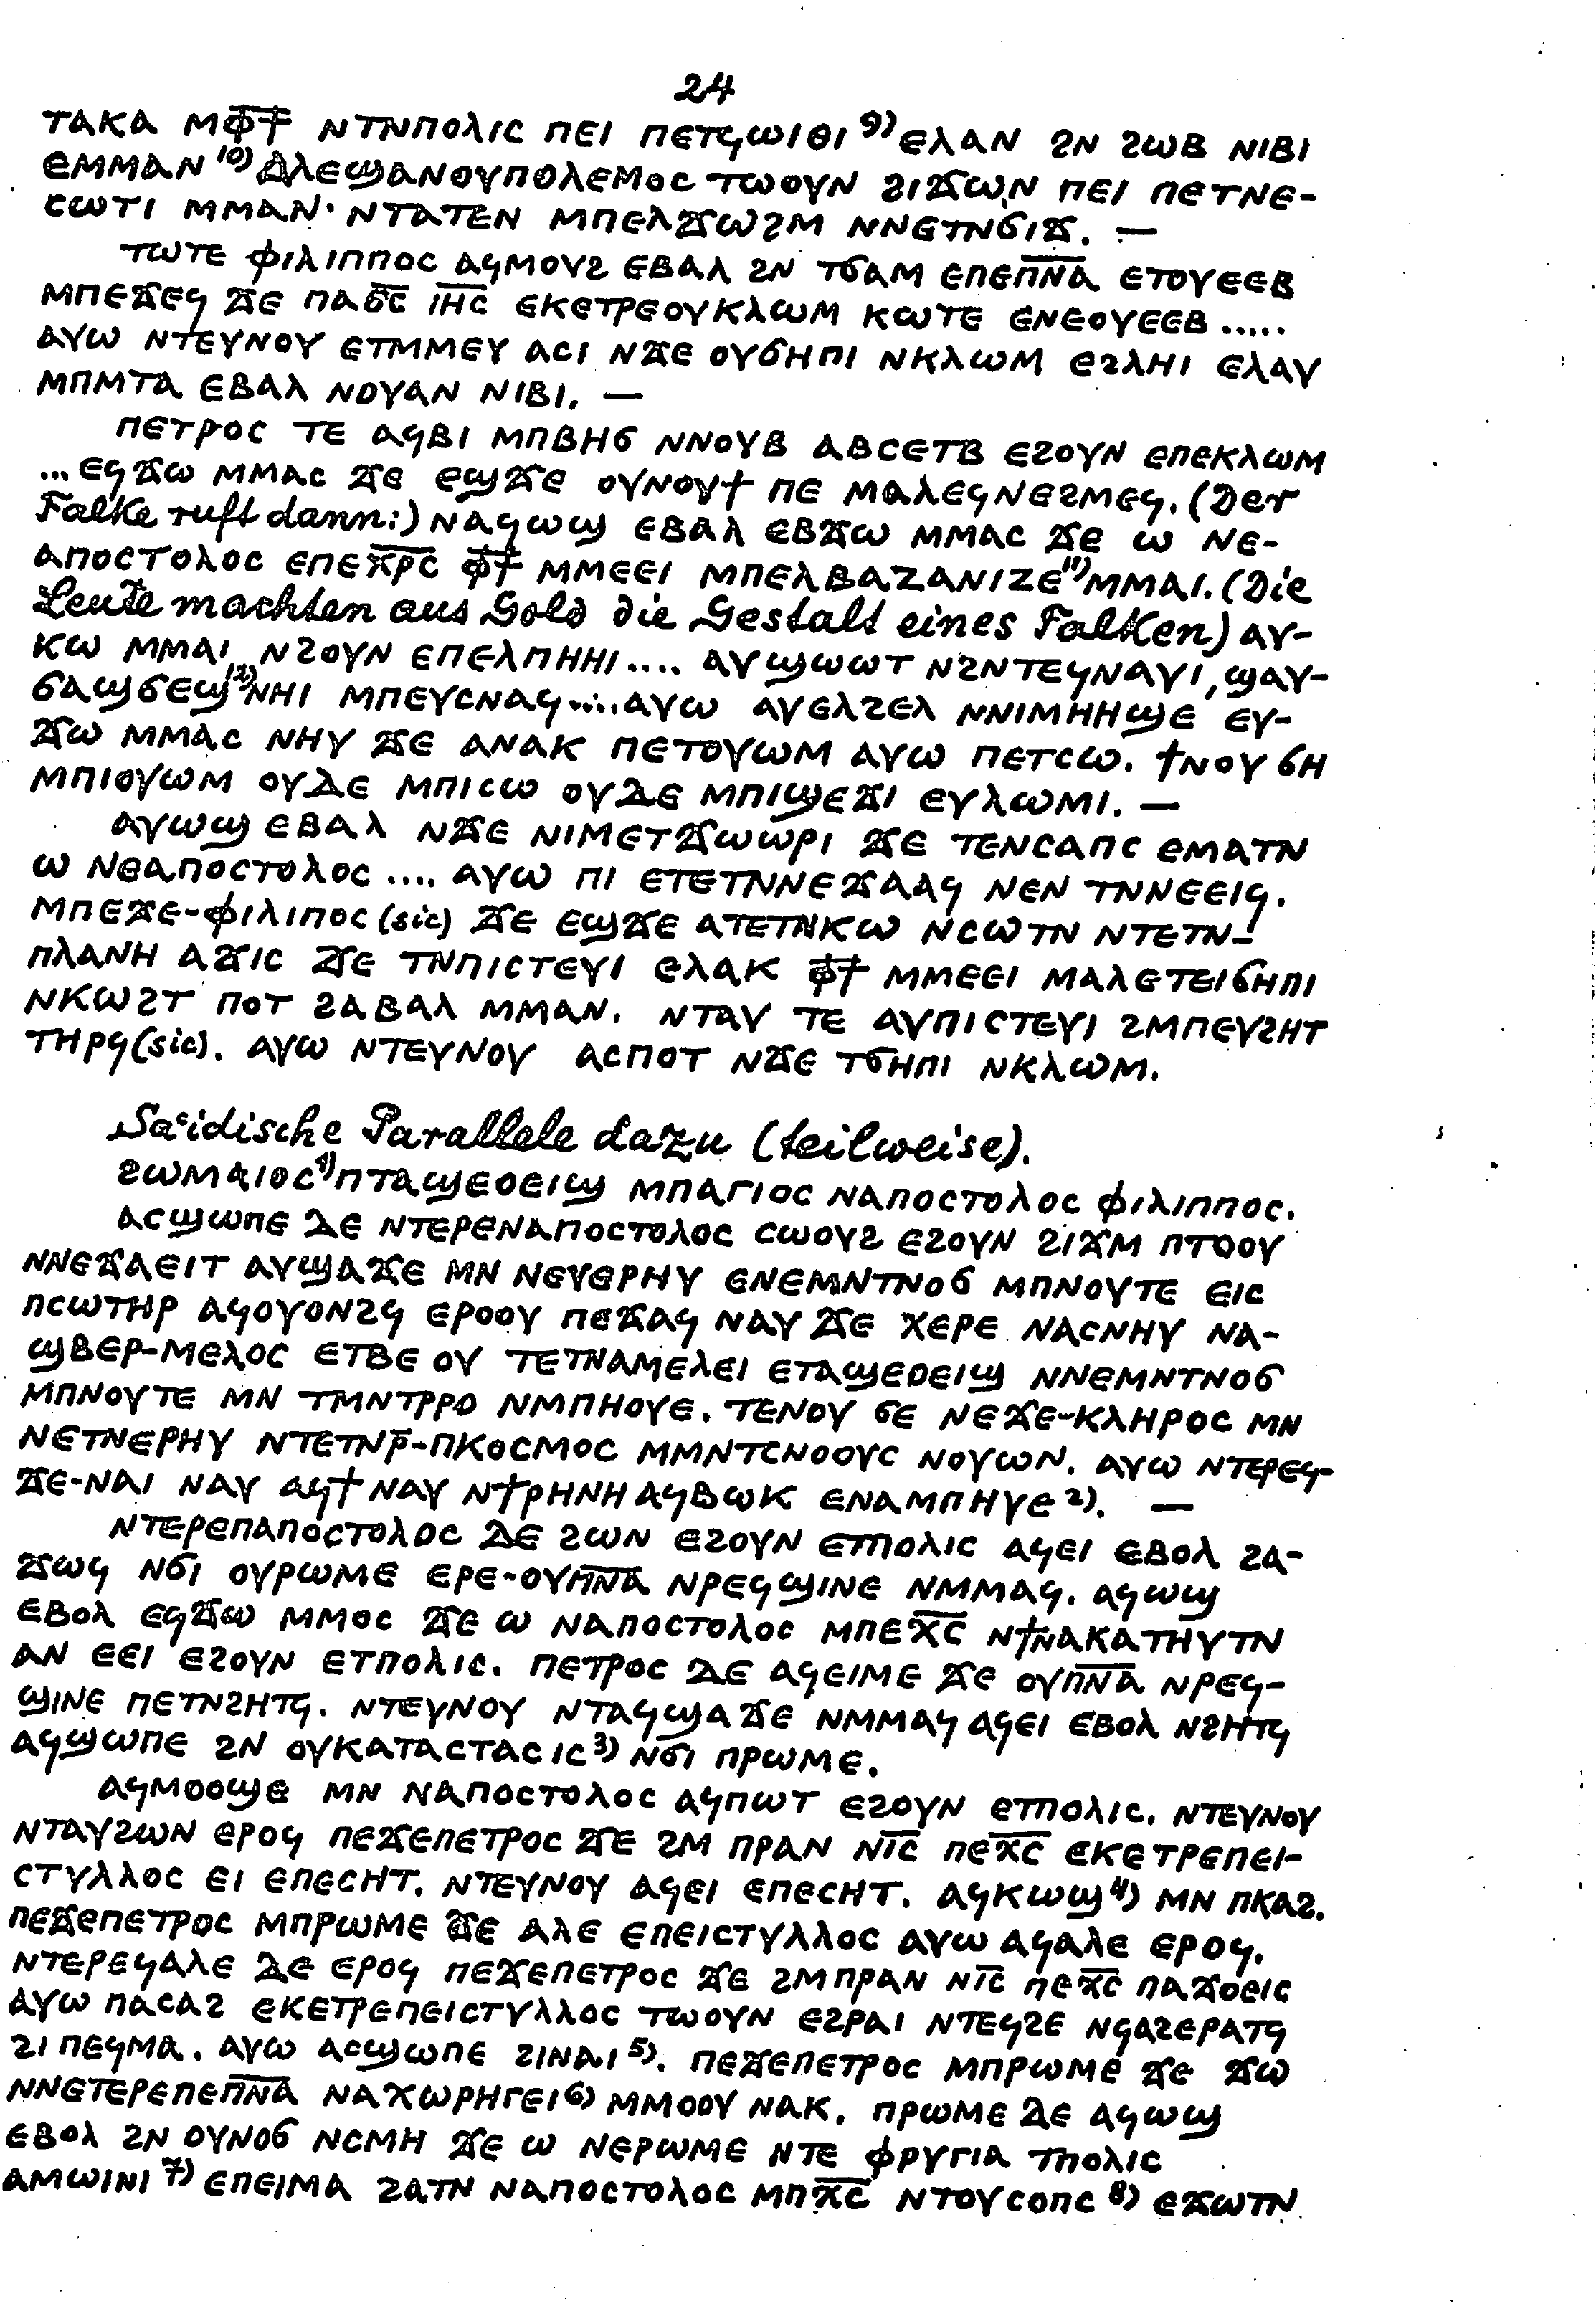 24
ⲧⲁⲕⲁ ⲙⲫ̅ϯ̅ ⲛⲧⲛⲡⲟⲗⲓⲥ ⲡⲉⲓ ⲡⲉⲧϥⲱⲓⲑⲓ ⁹⁾ ⲉⲗⲁⲛ ϩⲛ ϩⲱⲃ ⲛⲓⲃⲓ
ⲉⲙⲙⲁⲛ ¹⁰⁾ ⲁⲗⲉϣⲁⲛⲟⲩⲡⲟⲗⲉⲙⲟⲥ ⲧⲱⲟⲩⲛ ϩⲓϫⲱⲛ ⲡⲉⲓ ⲡⲉⲧⲛⲉ-
ⲥⲱⲧⲓ ⲙⲙⲁⲛ· ⲛⲧⲁⲧⲉⲛ ⲙⲡⲉⲗϫⲱϩⲙ ⲛⲛⲉⲧⲛϭⲓϫ. —
ⲧⲱⲧⲉ ⲫⲓⲗⲓⲡⲡⲟⲥ ⲁϥⲙⲟⲩϩ ⲉⲃⲁⲗ ϩⲛ ⲧϭⲁⲙ ⲉⲡⲉⲡ̅ⲛ̅ⲁ̅ ⲉⲧⲟⲩⲉⲉⲃ
ⲙⲡⲉϫⲉϥ ϫⲉ ⲡⲁϭ̅ⲥ̅ ⲓ̅ⲏ̅ⲥ̅ ⲉⲕⲉⲧⲣⲉⲟⲩⲕⲗⲱⲙ ⲕⲱⲧⲉ ⲉⲛⲉⲟⲩⲉⲉⲃ .....
ⲁⲩⲱ ⲛⲧⲉⲩⲛⲟⲩ ⲉⲧⲙⲙⲉⲩ ⲁⲥⲓ ⲛϫⲉ ⲟⲩϭⲏⲡⲓ ⲛⲕⲗⲱⲙ ⲉϩⲗⲏⲓ ⲉⲗⲁⲩ
ⲙⲡⲙⲧⲁ ⲉⲃⲁⲗ ⲛⲟⲩⲁⲛ ⲛⲓⲃⲓ. —
ⲡⲉⲧⲣⲟⲥ ⲧⲉ ⲁϥⲃⲓ ⲙⲡⲃⲏϭ ⲛⲛⲟⲩⲃ ⲁⲃⲥⲉⲧⲃ ⲉϩⲟⲩⲛ ⲉⲡⲉⲕⲗⲱⲙ
... ⲉϥϫⲱ ⲙⲙⲁⲥ ϫⲉ ⲉϣϫⲉ ⲟⲩⲛⲟⲩϯ ⲡⲉ ⲙⲁⲗⲉϥⲛⲉϩⲙⲉϥ. (Der
Falke ruft dann:) ⲛⲁϥⲱϣ ⲉⲃⲁⲗ ⲉⲃϫⲱ ⲙⲙⲁⲥ ϫⲉ ⲱ ⲛⲉ-
ⲁⲡⲟⲥⲧⲟⲗⲟⲥ ⲉⲡⲉⲭ̅ⲣ̅ⲥ̅ ⲫ̅ϯ̅ ⲙⲙⲉⲉⲓ ⲙⲡⲉⲗⲃⲁⲍⲁⲛⲓⲍⲉ¹¹⁾ ⲙⲙⲁⲓ. (Die
Leute machten aus Gold die Gestalt eines Falken) ⲁⲩ-
ⲕⲱ ⲙⲙⲁⲓ ⲛϩⲟⲩⲛ ⲉⲡⲉⲗⲡⲏⲏⲓ .... ⲁⲩϣⲱⲱⲧ ⲛϩⲛⲧⲉϥⲛⲁⲩⲓ, ϣⲁⲩ-
ϭⲁϣϭⲉϣ¹²⁾ ⲛⲏⲓ ⲙⲡⲉⲩⲥⲛⲁϥ ..... ⲁⲩⲱ ⲁⲩⲉⲗϩⲉⲗ ⲛⲛⲓⲙⲏⲏϣⲉ ⲉⲩ-
ϫⲱ ⲙⲙⲁⲥ ⲛⲏⲩ ϫⲉ ⲁⲛⲁⲕ ⲡⲉⲧⲟⲩⲱⲙ ⲁⲩⲱ ⲡⲉⲧⲥⲱ. ϯⲛⲟⲩ ϭⲏ
ⲙⲡⲓⲟⲩⲱⲙ ⲟⲩⲇⲉ ⲙⲡⲓⲥⲱ ⲟⲩⲇⲉ ⲙⲡⲓϣⲉϫⲓ ⲉⲩⲗⲱⲙⲓ. —
ⲁⲩⲱϣ ⲉⲃⲁⲗ ⲛϫⲉ ⲛⲓⲙⲉⲧϫⲱⲱⲣⲓ ϫⲉ ⲧⲉⲛⲥⲁⲡⲥ ⲉⲙⲁⲧⲛ
ⲱ ⲛⲉⲁⲡⲟⲥⲧⲟⲗⲟⲥ .... ⲁⲩⲱ ⲡⲓ ⲉⲧⲉⲧⲛⲛⲉϫⲁⲁϥ ⲛⲉⲛ ⲧⲛⲛⲉⲉⲓϥ.
ⲙⲡⲉϫⲉ-ⲫⲓⲗⲓⲡⲟⲥ (sic) ϫⲉ ⲉϣϫⲉ ⲁⲧⲉⲧⲛⲕⲱ ⲛⲥⲱⲧⲛ ⲛⲧⲉⲧⲛ-
ⲡⲗⲁⲛⲏ ⲁϫⲓⲥ ϫⲉ ⲧⲛⲡⲓⲥⲧⲉⲩⲓ ⲉⲗⲁⲕ ⲫ̅ϯ̅ ⲙⲙⲉⲉⲓ ⲙⲁⲗⲉⲧⲉⲓϭⲏⲡⲓ
ⲛⲕⲱϩⲧ ⲡⲟⲧ ϩⲁⲃⲁⲗ ⲙⲙⲁⲛ. ⲛⲧⲁⲩ ⲧⲉ ⲁⲩⲡⲓⲥⲧⲉⲩⲓ ϩⲙⲡⲉⲩϩⲏⲧ
ⲧⲏⲣϥ (sic). ⲁⲩⲱ ⲛⲧⲉⲩⲛⲟⲩ ⲁⲥⲡⲟⲧ ⲛϫⲉ ⲧϭⲏⲡⲓ ⲛⲕⲗⲱⲙ.
Saʿidische Parallele dazu (teilweise).
ϩⲱⲙⲁⲓⲟⲥ¹⁾ ⲡⲧⲁϣⲉⲟⲉⲓϣ ⲙⲡⲁⲅⲓⲟⲥ ⲛⲁⲡⲟⲥⲧⲟⲗⲟⲥ ⲫⲓⲗⲓⲡⲡⲟⲥ.
ⲁⲥϣⲱⲡⲉ ⲇⲉ ⲛⲧⲉⲣⲉⲛⲁⲡⲟⲥⲧⲟⲗⲟⲥ ⲥⲱⲟⲩϩ ⲉϩⲟⲩⲛ ϩⲓϫⲙ ⲡⲧⲟⲟⲩ
ⲛⲛⲉϫⲁⲉⲓⲧ ⲁⲩϣⲁϫⲉ ⲙⲛ ⲛⲉⲩⲉⲣⲏⲩ ⲉⲛⲉⲙⲛⲧⲛⲟϭ ⲙⲡⲛⲟⲩⲧⲉ ⲉⲓⲥ
ⲡⲥⲱⲧⲏⲣ ⲁϥⲟⲩⲟⲛϩϥ ⲉⲣⲟⲟⲩ ⲡⲉϫⲁϥ ⲛⲁⲩ ϫⲉ ⲭⲉⲣⲉ ⲛⲁⲥⲛⲏⲩ ⲛⲁ-
ϣⲃⲉⲣ-ⲙⲉⲗⲟⲥ ⲉⲧⲃⲉ ⲟⲩ ⲧⲉⲧⲛⲁⲙⲉⲗⲉⲓ ⲉⲧⲁϣⲉⲟⲉⲓϣ ⲛⲛⲉⲙⲛⲧⲛⲟϭ
ⲙⲡⲛⲟⲩⲧⲉ ⲙⲛ ⲧⲙⲛⲧⲣⲣⲟ ⲛⲙⲡⲏⲟⲩⲉ. ⲧⲉⲛⲟⲩ ϭⲉ ⲛⲉϫⲉ-ⲕⲗⲏⲣⲟⲥ ⲙⲛ
ⲛⲉⲧⲛⲉⲣⲏⲩ ⲛⲧⲉⲧⲛⲣ̅-ⲡⲕⲟⲥⲙⲟⲥ ⲙⲙⲛⲧⲥⲛⲟⲟⲩⲥ ⲛⲟⲩⲱⲛ. ⲁⲩⲱ ⲛⲧⲉⲣⲉϥ-
ϫⲉ-ⲛⲁⲓ ⲛⲁⲩ ⲁϥϯ ⲛⲁⲩ ⲛϯⲣⲏⲛⲏ ⲁϥⲃⲱⲕ ⲉⲛⲁⲙⲡⲏⲩⲉ ²⁾. —
ⲛⲧⲉⲣⲉⲡⲁⲡⲟⲥⲧⲟⲗⲟⲥ ⲇⲉ ϩⲱⲛ ⲉϩⲟⲩⲛ ⲉⲧⲡⲟⲗⲓⲥ ⲁϥⲉⲓ ⲉⲃⲟⲗ ϩⲁ-
ϫⲱϥ ⲛϭⲓ ⲟⲩⲣⲱⲙⲉ ⲉⲣⲉ-ⲟⲩⲡ̅ⲛ̅ⲁ̅ ⲛⲣⲉϥϣⲓⲛⲉ ⲛⲙⲙⲁϥ. ⲁϥⲱϣ
ⲉⲃⲟⲗ ⲉϥϫⲱ ⲙⲙⲟⲥ ϫⲉ ⲱ ⲛⲁⲡⲟⲥⲧⲟⲗⲟⲥ ⲙⲡⲉⲭ̅ⲥ̅ ⲛϯⲛⲁⲕⲁⲧⲏⲩⲧⲛ
ⲁⲛ ⲉⲉⲓ ⲉϩⲟⲩⲛ ⲉⲧⲡⲟⲗⲓⲥ. ⲡⲉⲧⲣⲟⲥ ⲇⲉ ⲁϥⲉⲓⲙⲉ ϫⲉ ⲟⲩⲡ̅ⲛ̅ⲁ̅ ⲛⲣⲉϥ-
ϣⲓⲛⲉ ⲡⲉⲧⲛϩⲏⲧϥ. ⲛⲧⲉⲩⲛⲟⲩ ⲛⲧⲁϥϣⲁϫⲉ ⲛⲙⲙⲁϥ ⲁϥⲉⲓ ⲉⲃⲟⲗ ⲛϩⲏⲧϥ
ⲁϥϣⲱⲡⲉ ϩⲛ ⲟⲩⲕⲁⲧⲁⲥⲧⲁⲥⲓⲥ ³⁾ ⲛϭⲓ ⲡⲣⲱⲙⲉ.
ⲁϥⲙⲟⲟϣⲉ ⲙⲛ ⲛⲁⲡⲟⲥⲧⲟⲗⲟⲥ ⲁϥⲡⲱⲧ ⲉϩⲟⲩⲛ ⲉⲧⲡⲟⲗⲓⲥ. ⲛⲧⲉⲩⲛⲟⲩ
ⲛⲧⲁⲩϩⲱⲛ ⲉⲣⲟϥ ⲡⲉϫⲉⲡⲉⲧⲣⲟⲥ ϫⲉ ϩⲙ ⲡⲣⲁⲛ ⲛⲓ̅ⲥ̅ ⲡⲉⲭ̅ⲥ̅ ⲉⲕⲉⲧⲣⲉⲡⲉⲓ-
ⲥⲧⲩⲗⲗⲟⲥ ⲉⲓ ⲉⲡⲉⲥⲏⲧ. ⲛⲧⲉⲩⲛⲟⲩ ⲁϥⲉⲓ ⲉⲡⲉⲥⲏⲧ. ⲁϥⲕⲱϣ⁴⁾ ⲙⲛ ⲡⲕⲁϩ.
ⲡⲉϫⲉⲡⲉⲧⲣⲟⲥ ⲙⲡⲣⲱⲙⲉ ϫⲉ ⲁⲗⲉ ⲉⲡⲉⲓⲥⲧⲩⲗⲗⲟⲥ ⲁⲩⲱ ⲁϥⲁⲗⲉ ⲉⲣⲟϥ.
ⲛⲧⲉⲣⲉϥⲁⲗⲉ ⲇⲉ ⲉⲣⲟϥ ⲡⲉϫⲉⲡⲉⲧⲣⲟⲥ ϫⲉ ϩⲙⲡⲣⲁⲛ ⲛⲓ̅ⲥ̅ ⲡⲉⲭ̅ⲥ̅ ⲡⲁϫⲟⲉⲓⲥ
ⲁⲩⲱ ⲡⲁⲥⲁϩ ⲉⲕⲉⲧⲣⲉⲡⲉⲓⲥⲧⲩⲗⲗⲟⲥ ⲧⲱⲟⲩⲛ ⲉϩⲣⲁⲓ ⲛⲧⲉϥϩⲉ ⲛϥⲁϩⲉⲣⲁⲧϥ
ϩⲓ ⲡⲉϥⲙⲁ. ⲁⲩⲱ ⲁⲥϣⲱⲡⲉ ϩⲓⲛⲁⲓ ⁵⁾. ⲡⲉϫⲉⲡⲉⲧⲣⲟⲥ ⲙⲡⲣⲱⲙⲉ ϫⲉ ϫⲱ
ⲛⲛⲉⲧⲉⲣⲉⲡⲉⲡ̅ⲛ̅ⲁ̅ ⲛⲁⲭⲱⲣⲏⲅⲉⲓ ⁶⁾ ⲙⲙⲟⲟⲩ ⲛⲁⲕ. ⲡⲣⲱⲙⲉ ⲇⲉ ⲁϥⲱϣ
ⲉⲃⲟⲗ ϩⲛ ⲟⲩⲛⲟϭ ⲛⲥⲙⲏ ϫⲉ ⲱ ⲛⲉⲣⲱⲙⲉ ⲛⲧⲉ ⲫⲣⲩⲅⲓⲁ ⲧⲡⲟⲗⲓⲥ
ⲁⲙⲱⲓⲛⲓ ⁷⁾ ⲉⲡⲉⲓⲙⲁ ϩⲁⲧⲛ ⲛⲁⲡⲟⲥⲧⲟⲗⲟⲥ ⲙⲡⲭ̅ⲥ̅ ⲛⲧⲟⲩⲥⲟⲡⲥ ⁸⁾ ⲉϫⲱⲧⲛ